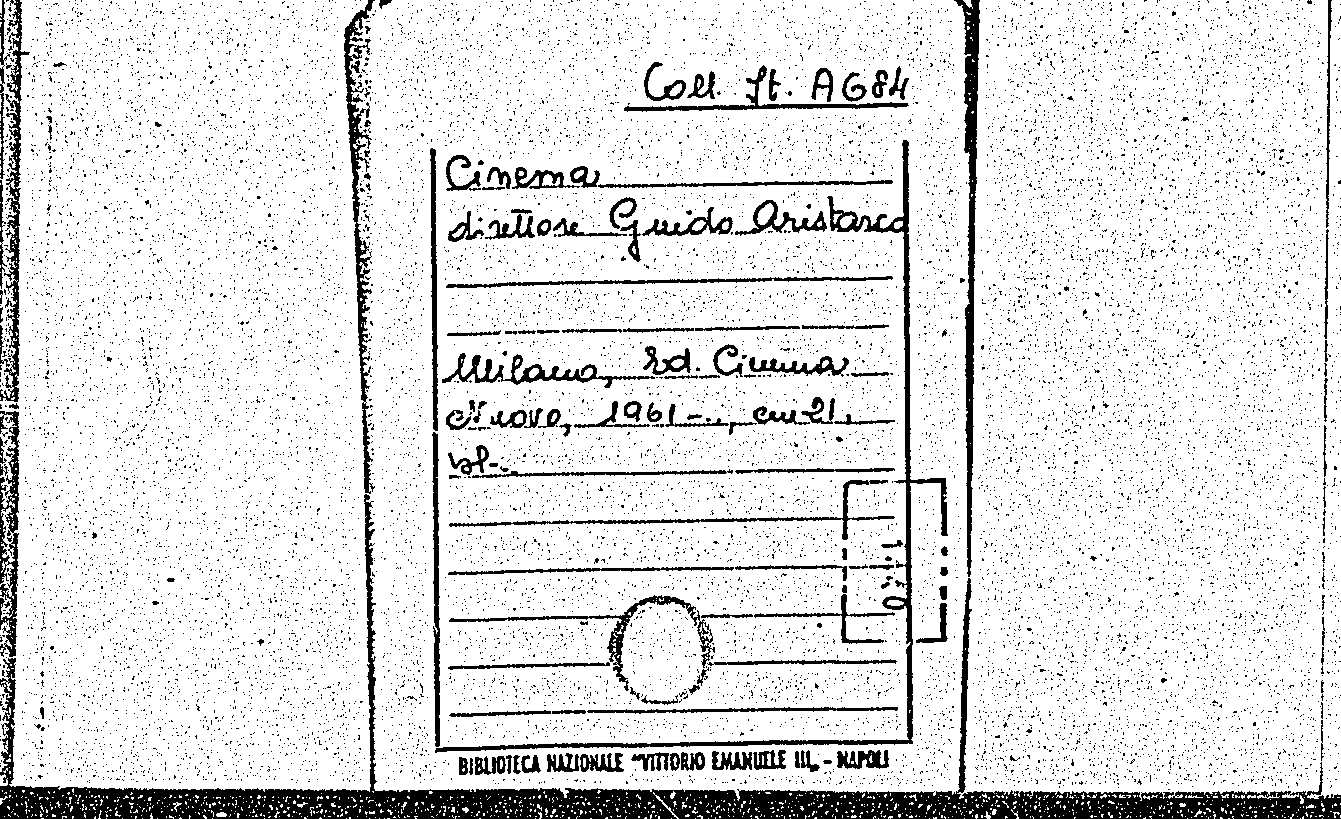 Coll. It. A G84
Cinema
direttore Guido Aristarco
Milano, Ed. Cinema
Nuovo, 1961-.., cm 21.
BIBLIOTECA NAZIONALE "VITTORIO EMANUELE III„ - NAPOLI